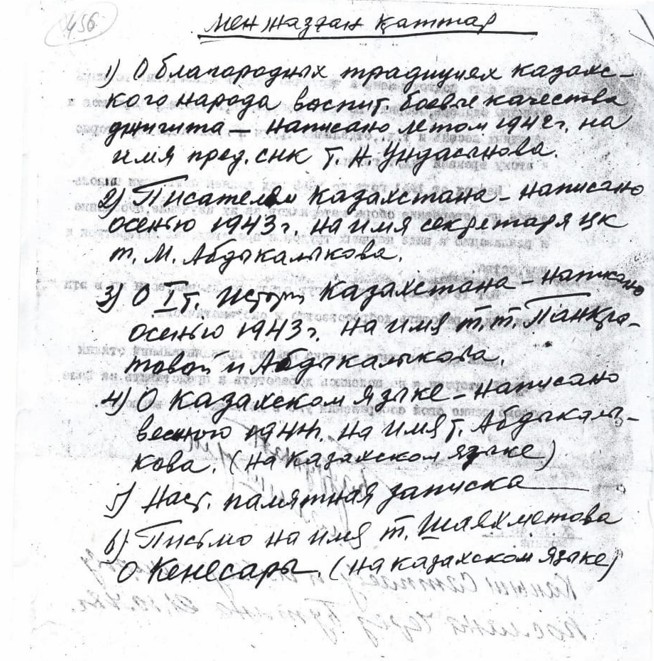 456
мен жаздан каттар
1) О благородных традициях казахс-
кого народа воспит. боевые качества
джигита – написано летом 1942г. на
имя пред. снк т. Н. Ундасынова.
2) Писателям Казахстана – написано
осенью 1943г. на имя секретаря ЦК
т. М. Абдыкалыкова.
3) О I т. Истор. Казахстана – написано
осенью 1943г. на имя т. т. Панкра-
товой и Абдыкалыкова.
4) О Казахском языке – написано
весною 1944. на имя т. Абдыкалы-
кова. (на казахском языке)
5) Наст. памятная записка
6) Письмо на имя т. Шаяхметова
О Кенесары (на казахском языке)